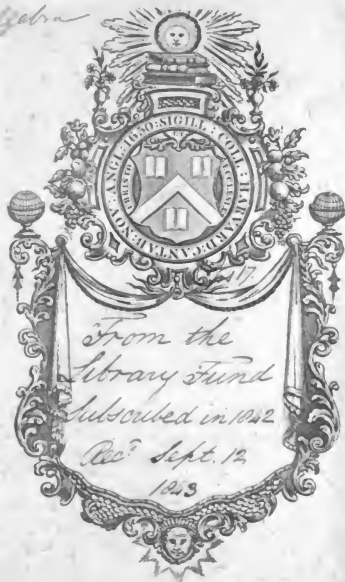 SIGILL : COLL : HARVARDI : CANTAB : NOV : ANGL : 1650 :
From the
Library Fund
Subscribed in 1842
Recd Sept. 12
1843